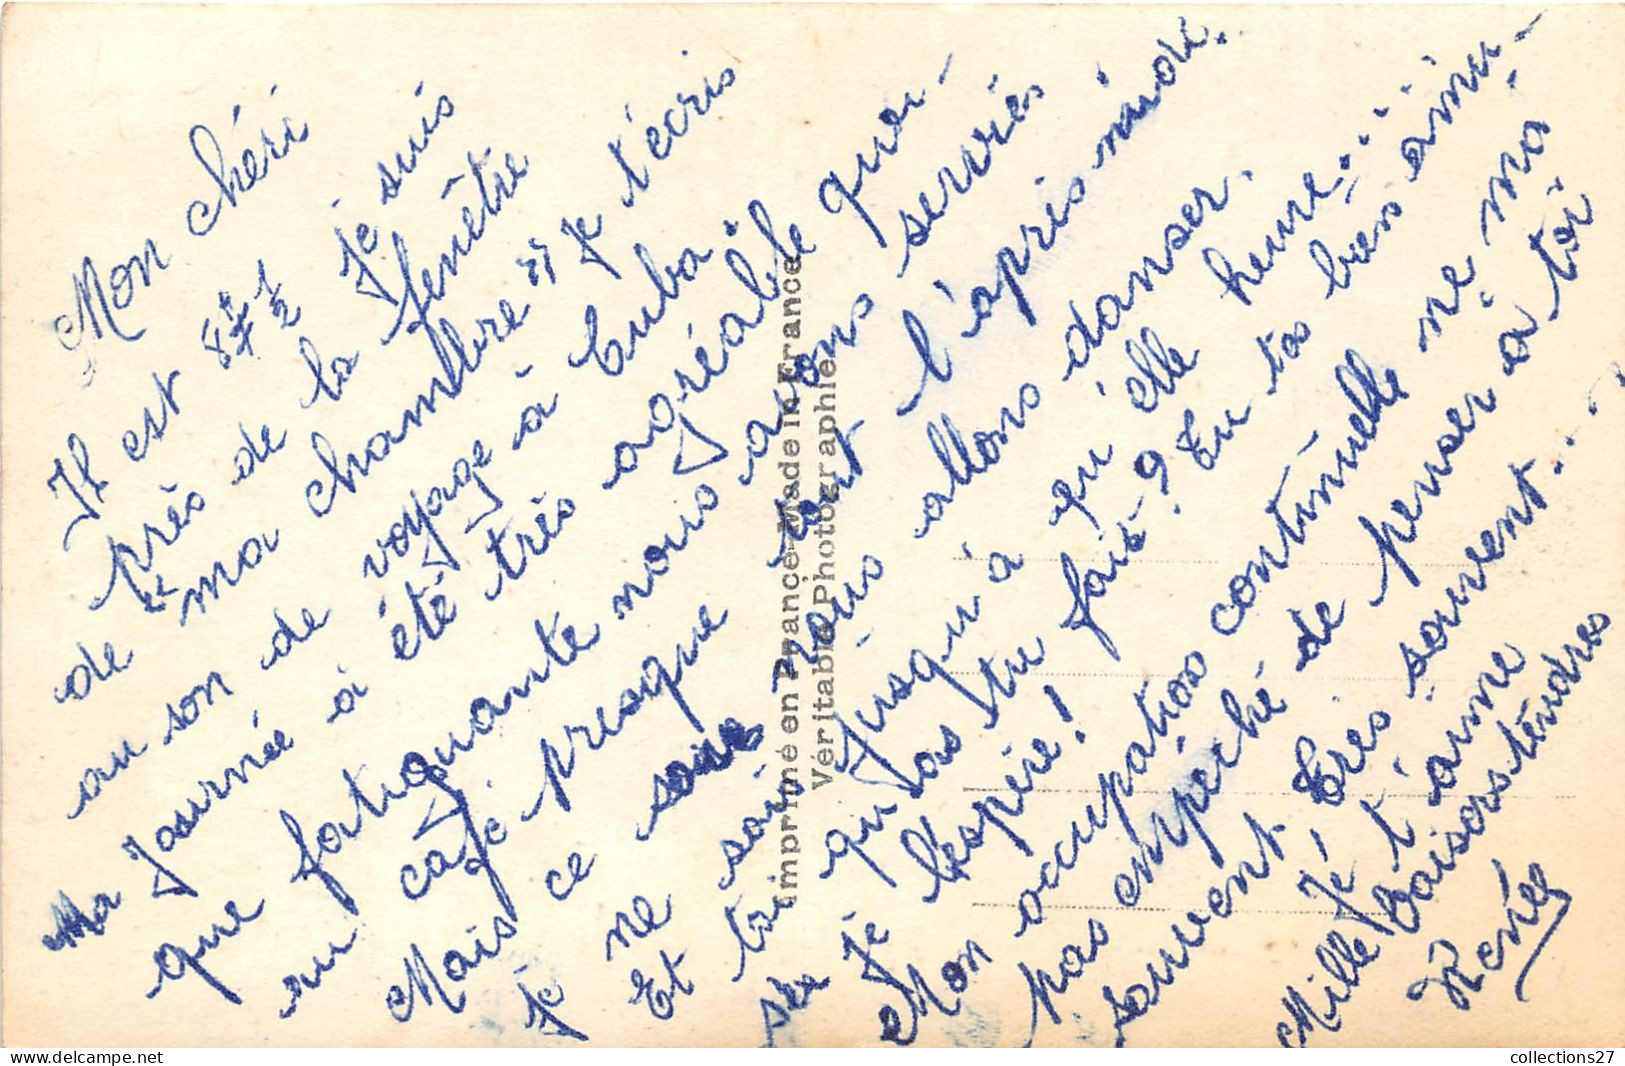 Mon chéri
Il est 8h 1/2 Je suis
près de la fenêtre
de "ma chambre" Je t'écris
au son de voyage à Cuba.
Ma journée a été très agréable quoi-
que fatiguante nous avons servies
au café presque tout l'après midi.
Mais ce soir nous allons danser.
Je ne sais jusqu'à qu'elle heure....
Et toi qu'as tu fait? Tu t'es bien amu-
sée je l'espère!
Mon occupation continuelle ne m'a
pas empêché de penser à toi
souvent. très souvent....
Je t'aime
Mille baisers tendres
Renée
Imprimé en France-Made in France
Véritable Photographie
collections27